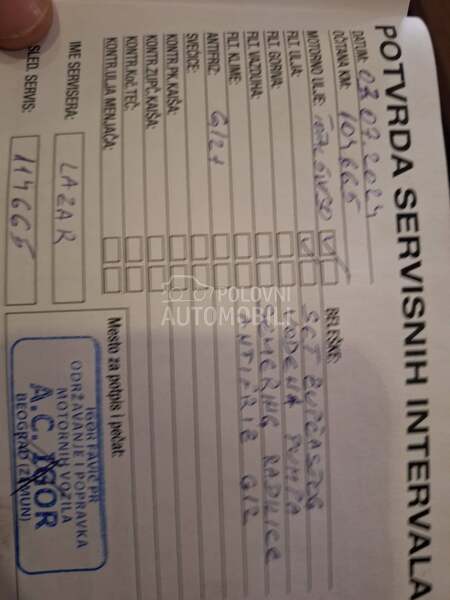 POTVRDA SERVISNIH INTERVALA
DATUM: 03.07.2024
OČITANA KM: 104665
MOTORNO ULJE: TOTAL 5W30
FILT. ULJA:
FILT. GORIVA:
FILT. VAZDUHA:
FILT. KLIME:
ANTIFRIZ: G12+
SVEĆICE:
KONTR.PK.KAIŠA:
KONTR. ZUPČ. KAIŠA:
KONTR.KoČ.TEČ:
KONTR.ULJA MENJAČA:
IME SERVISERA: LAZAR
SLED. SERVIS: 114665
BELEŠKE:
SET ZUPČASTOG
VODENA PUMPA
SEMERING RADILICE
ANTIFRIZ G12
Mesto za potpis i pečat:
IGOR FAVIĆ PR
ODRŽAVANJE I POPRAVKA
MOTORNIH VOZILA
A.C. IGOR
BEOGRAD (ZEMUN)
POLOVNI
AUTOMOBILI